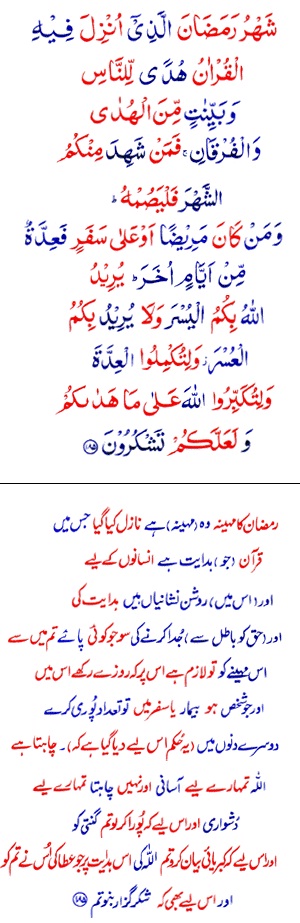 شَهْرُ رَمَضَانَ الَّذِىْٓ اُنْزِلَ فِيْهِ
الْقُرْاٰنُ هُدًى لِّلنَّاسِ
وَ بَيِّنٰتٍ مِّنَ الْهُدٰى
وَالْفُرْقَانِ ۚ فَمَنْ شَهِدَ مِنْكُمُ
الشَّهْرَ فَلْيَصُمْهُ ؕ
وَ مَنْ كَانَ مَرِيْضًا اَوْ عَلٰى سَفَرٍ فَعِدَّةٌ
مِّنْ اَيَّامٍ اُخَرَ ؕ يُرِيْدُ
اللّٰهُ بِكُمُ الْيُسْرَ وَلَا يُرِيْدُ بِكُمُ
الْعُسْرَ ؗ وَلِتُكْمِلُوا الْعِدَّةَ
وَلِتُكَبِّرُوا اللّٰهَ عَلٰى مَا هَدٰىكُمْ
وَ لَعَلَّكُمْ تَشْكُرُوْنَ ﴿۱۸۵﴾
رمضان کا مہینہ وہ (مہینہ) ہے نازل کیا گیا جس میں
قرآن (جو) ہدایت ہے انسانوں کے لیے
اور (اس میں) روشن نشانیاں ہیں ہدایت کی
اور (حق کو باطل سے) جُدا کرنے کی سو جو کوئی پائے تم میں سے
اس مہینے کو تو لازم ہے اس پر کہ روزے رکھے اس میں
اور جو شخص ہو بیمار یا سفر میں تو تعداد پُوری کرے
دوسرے دنوں میں (یہ حُکم اس لیے دیا گیا ہے کہ)۔ چاہتا ہے
اللہ تمہارے لیے آسانی اور نہیں چاہتا تمہارے لیے
دُشواری اور اس لیے کہ پُورا کر لو تم گنتی کو
اور اس لیے کہ کبریائی بیان کرو تم اللہ کی اس ہدایت پر جو عطا کی اُس نے تم کو
اور اس لیے بھی کہ شکر گزار بنو تم ﴿۱۸۵﴾